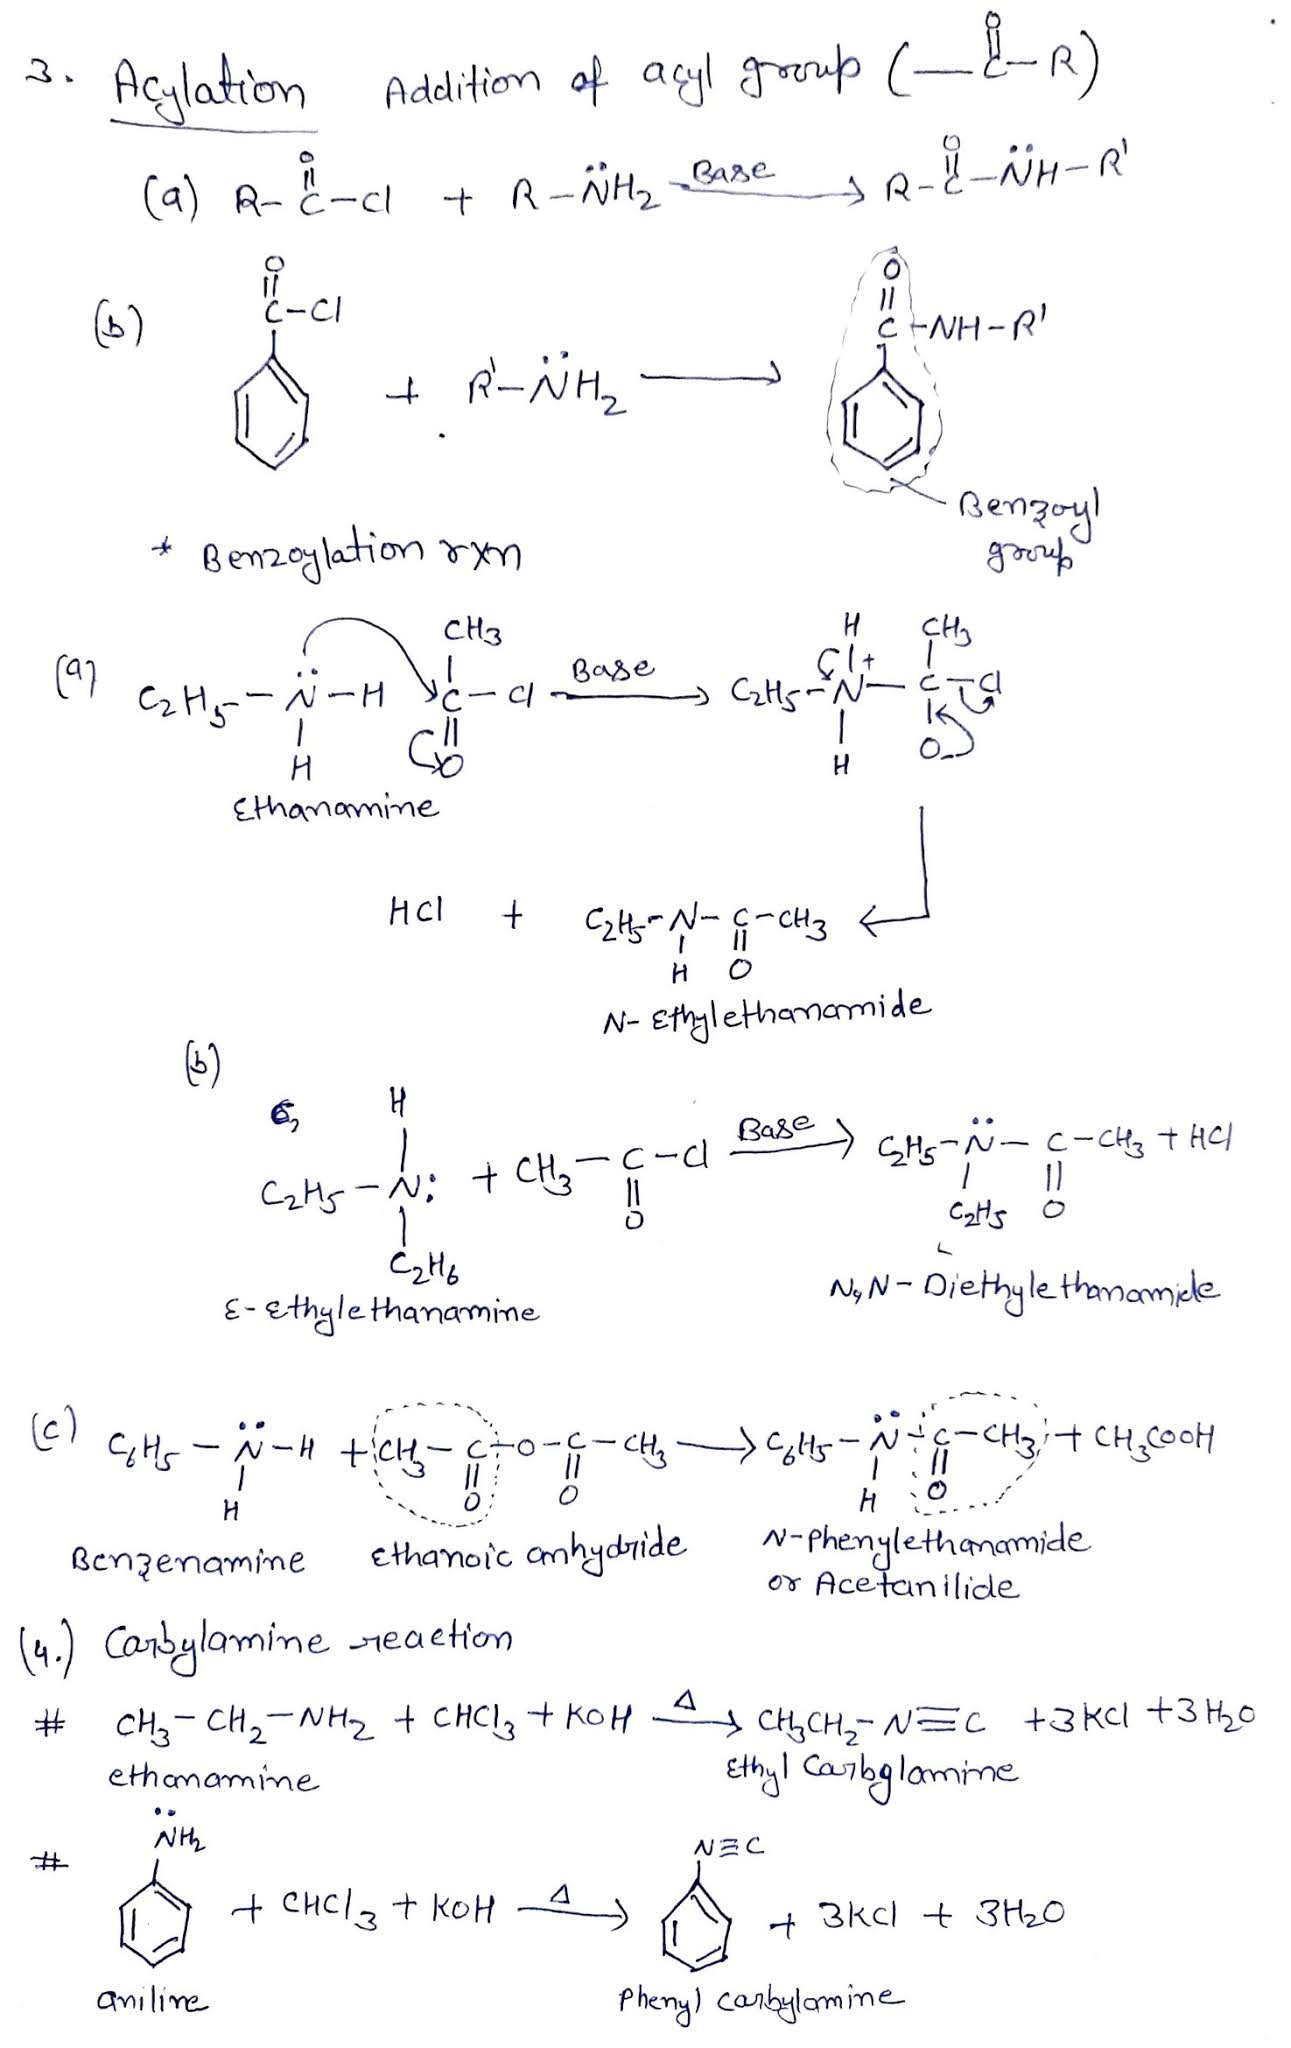 3. Acylation Addition of acyl group (—C(=O)—R)
(a) R-C(=O)-Cl + R-N̈H₂ —Base→ R-C(=O)-N̈H-R'
(b) C(=O)-Cl + R'-N̈H₂ → C(=O)-NH-R'
Benzoyl
group
* Benzoylation rxn
(a) C₂H₅-N̈(H)-H + CH₃-C(=O)-Cl —Base→ C₂H₅-N⁺(H)(H)-C(CH₃)(O)-Cl
Ethanamine
HCl + C₂H₅-N(H)-C(=O)-CH₃
N-Ethylethanamide
(b)
C₂H₅-N̈(H)-C₂H₆ + CH₃-C(=O)-Cl —Base→ C₂H₅-N̈(C₂H₅)-C(=O)-CH₃ + HCl
ε-Ethylethanamine N,N-Diethylethanamide
(c) C₆H₅-N̈(H)-H + CH₃-C(=O)-O-C(=O)-CH₃ → C₆H₅-N̈(H)-C(=O)-CH₃ + CH₃COOH
Benzenamine Ethanoic anhydride N-Phenylethanamide
or Acetanilide
(4.) Carbylamine reaction
# CH₃-CH₂-NH₂ + CHCl₃ + KOH —Δ→ CH₃CH₂-N≡C + 3KCl + 3H₂O
ethanamine Ethyl Carbylamine
# N̈H₂ + CHCl₃ + KOH —Δ→ N≡C + 3KCl + 3H₂O
aniline Phenyl carbylamine